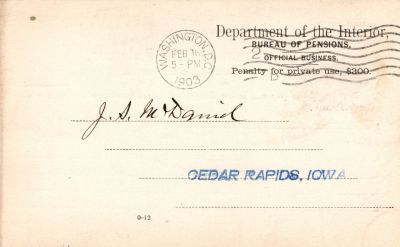 WASHINGTON, D.C.
FEB 16
5-PM
1903
Department of the Interior,
BUREAU OF PENSIONS,
2
OFFICIAL BUSINESS.
Penalty for private use, $300.
D
J. S. McDaniel
CEDAR RAPIDS, IOWA
0-12